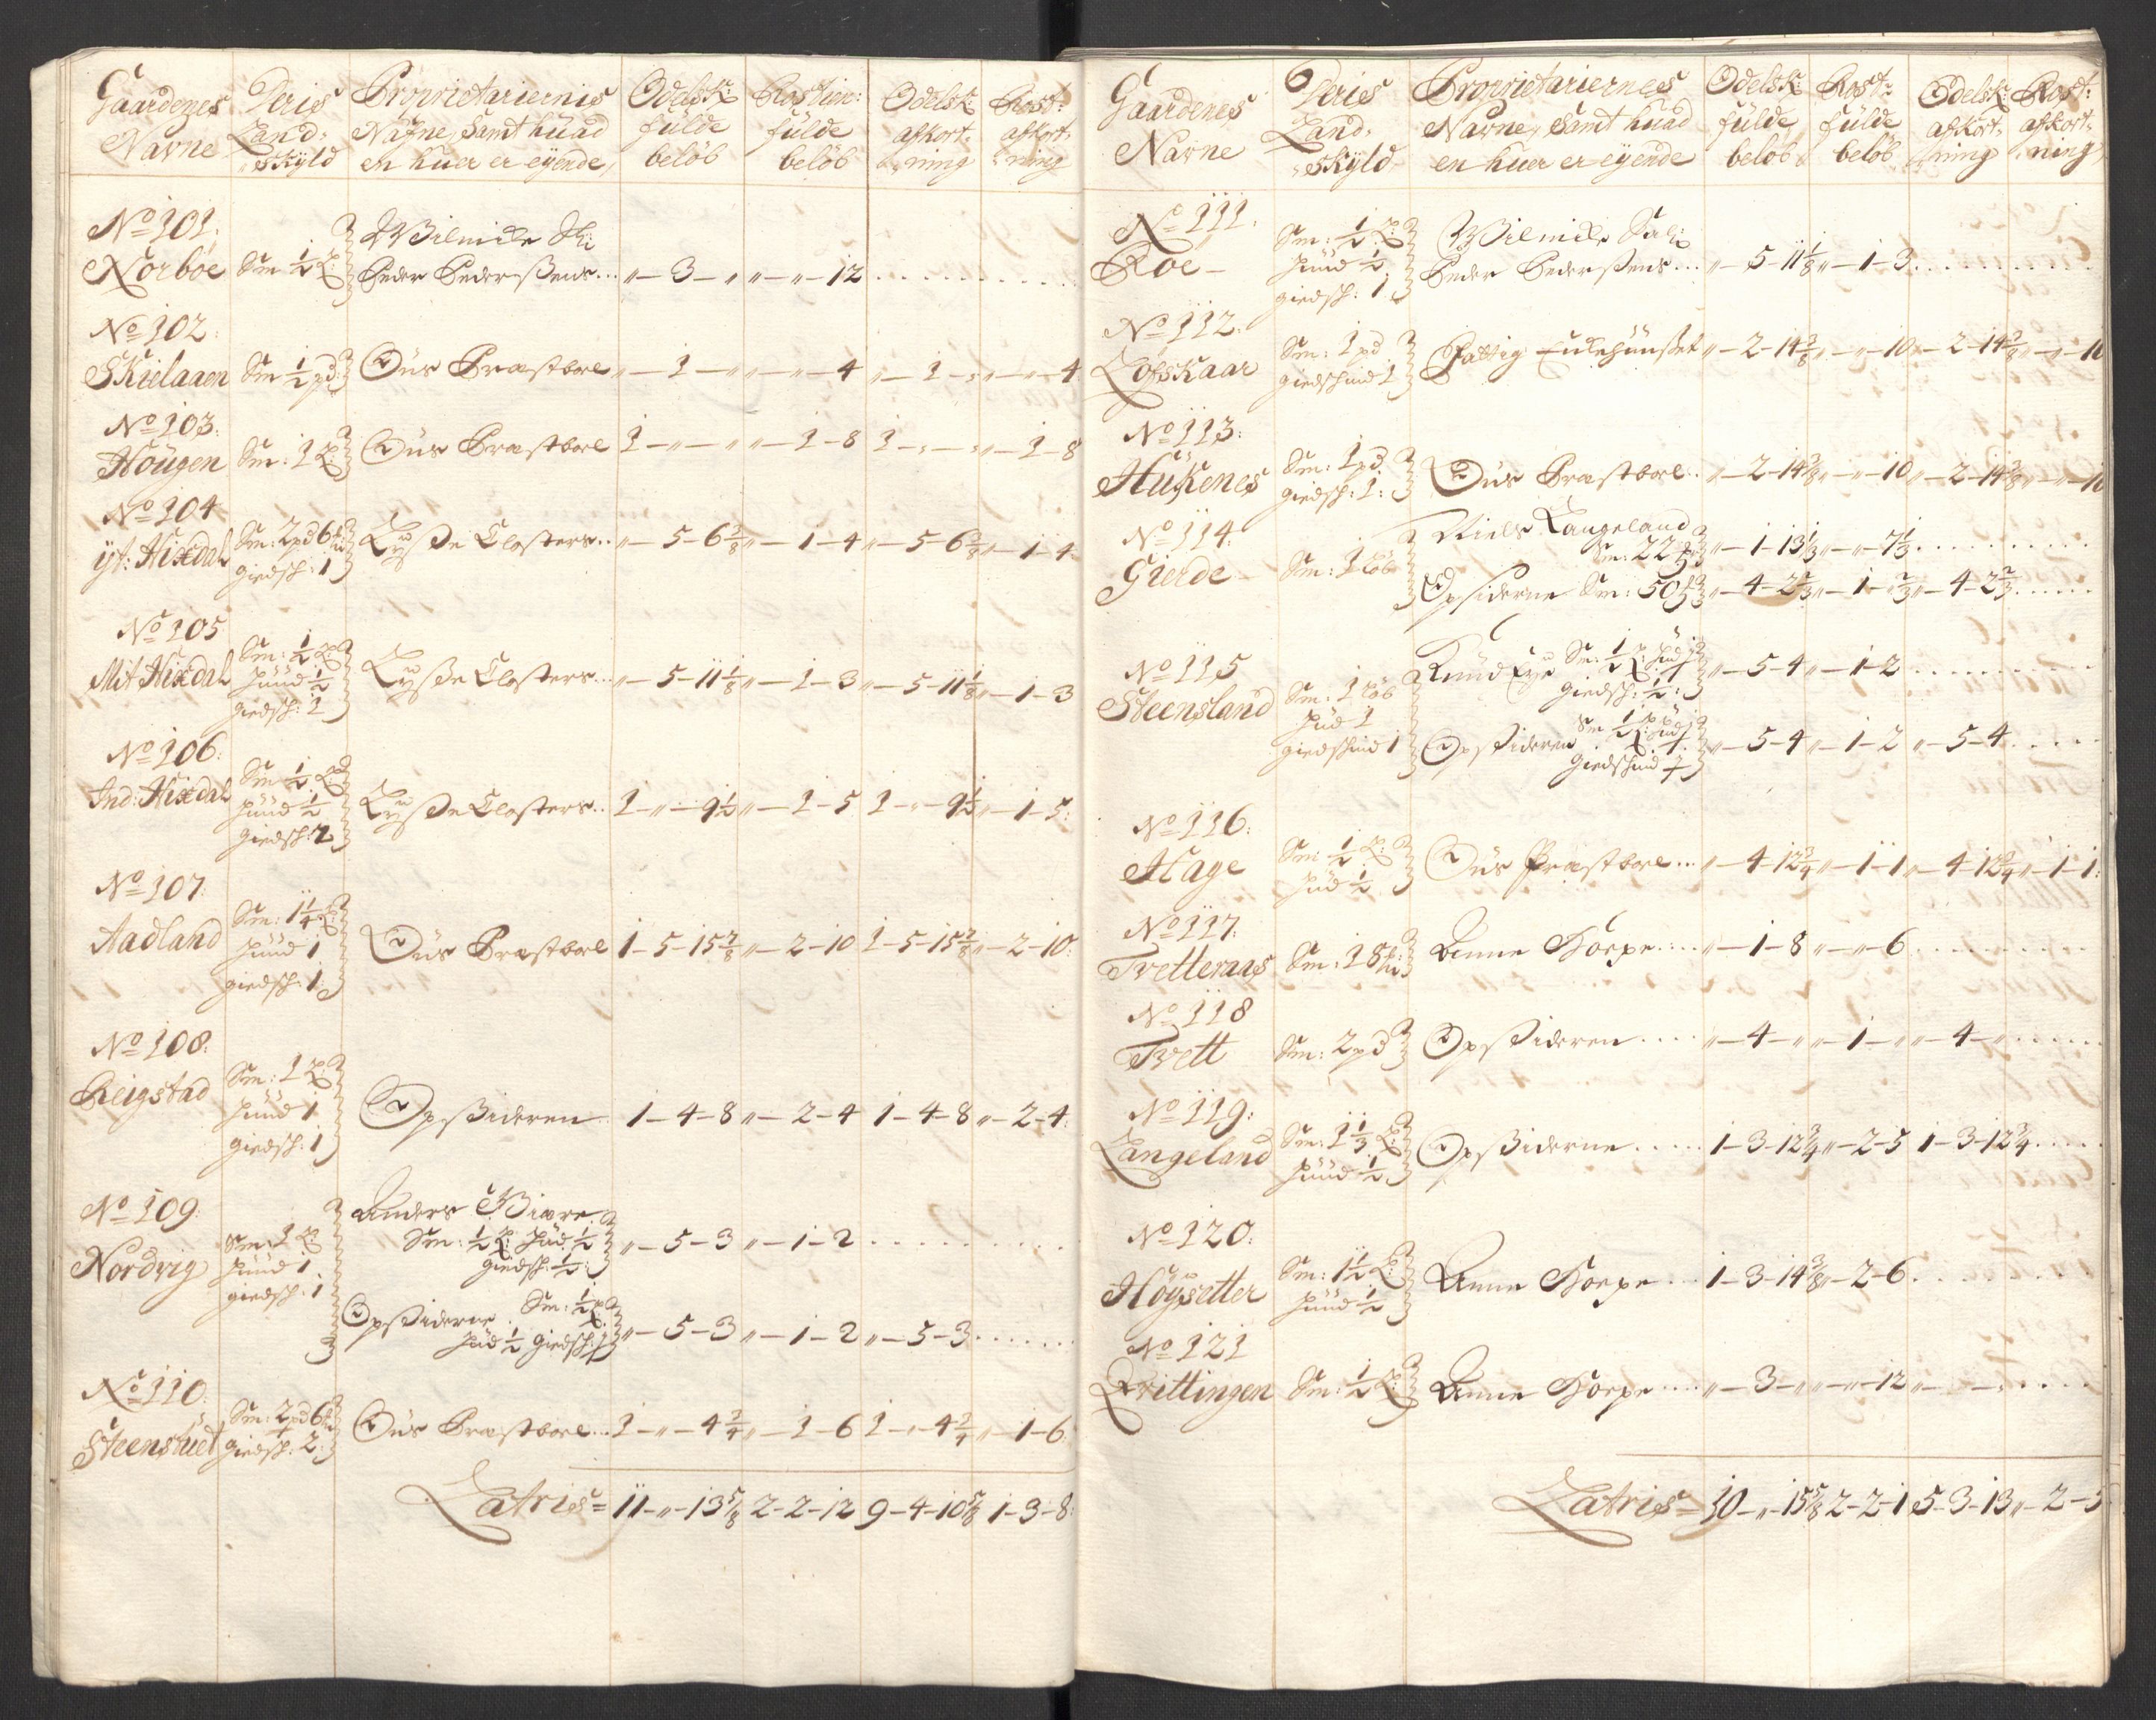 Gaardenes Navne | Deris Land-skyld | Proprietariernis Nafne, Samt huad en huer er eyende | Odelsk: fulde beløb | Rostien: fulde beløb | Odelsk: afkort-ning | Rost: afkort-ning
No 101:
Norboe | Sm 1/2 | Wilmike Sl: Peder Pederssens... | „-3-„ | „-„-12 | . . . . .
No 102:
Skielaaen | Sm 1/2 pd | Ous Præstbol | „-1-„ | „-„-4 | „-1-„ | „-„-4
No 103:
Hougen | Sm: 1 | Ous Præstbol | 1-„-„ | „-1-8 | 1-„-„ | „-1-8
No 104
yt: Hixdal | Sm: 2 pd 6 giedsk: 1 | Lysse Closter.. | „-5-6 3/8 | „-1-4 | „-5-6 3/8 | „-1-4
No 105
Mit Hixdal | Sm: 1/2 huud 1/2 giedsk: 1 | Lysse Closter... | „-5-11 1/8 | „-1-3 | „-5-11 1/8 | „-1-3
No 106:
Ind: Hixdal | Sm 1/2 huud 1/2 giedsk: 2 | Lysse Closter.. | 1-„-9 1/2 | „-1-5 | 1-„-9 1/2 | „-1-5:
No 107
Aadland | Sm: 1 1/4 huud 1 giedsk: 1 | Ous Præstbol | 1-5-15 7/8 | „-2-10 | 1-5-15 7/8 | „-2-10:
No 108:
Reigstad | Sm: 1 huud 1 giedsk: 1 | Opsideren | 1-4-8 | „-2-4 | 1-4-8 | „-2-4:
No 109:
Nordvig | Sm: 1 huud 1 giedsk: 1 | Anders Sm: 1/2 hud: 1/2 giedsk: 1/2 | „-5-3 | „-1-2 | . . . . .
Opsiderne Sm: 1/2 hud 1/2 giedsk: 1/2 | „-5-3 | „-1-2 | „-5-3 . . . . .
No 110:
Steenstuet | Sm: 2 pd 6 giedsk: 2 | Ous Præstbol... | 1-„-4 3/4 | „-1-6 | 1-„-4 3/4 | „-1-6
Latris = 11-„-13 5/8 | 2-2-12 | 9-4-10 5/8 | 1-3-8:
Gaardenes Navne | Deris Land-skyld | Proprietariernes Navne, Samt huad en huer er eyende | Odelsk: fulde beløb | Rost: fulde beløb | Odelsk: afkort-ning | Rost: afkort-ning
No 111:
Roe | Sm: 1/2 huud 1/2 giedsk: 1 | Wilmike Sal: Peder Pederssens... | „-5-11 1/8 | „-1-3 | . . . . .
No 112:
Lofskaar | Sm: 1 pd giedskind 1 | Fattig | „-2-14 3/8 | „-„-10 | „-2-14 3/8 | „-„-10
No 113:
Hukenes | Sm: 1 pd giedsk: 1: | Ous Præstbol.. | „-2-14 3/8 | „-„-10 | „-2-14 3/8 | „-„-10
No 114:
Gierde | Sm: 1 løb | Niels Langeland Sm: 22 | „-1-13 1/3 | „-„-7 1/3 . . . . .
Opsiderne Sm: 50 | „-4-2 2/3 | „-1- 2/3 | „-4-2 2/3 . . . . .
No 115
Steensland | Sm: 1 løb hud 1 giedskind 1 | Knud Eye Sm: 1/2 hud 1/2 giedsk: 1/2: | „-5-4 | „-1-2 . . . . .
Opsideren Sm 1/2 hud 1/2 Giedskind 1/2 | „-5-4 | „-1-2 | „-5-4 . . . .
No 116:
Hage | Sm: 1/2 hud 1/2 | Ous Præstbol... | „-4-12 3/4 | „-1-1 | „-4-12 3/4 | „-1-1:
No 117:
Tvetteraas | Sm: 18 | Anne Korpe .... | „-1-8 | „-„-6 . . . . .
No 118
Tvett | Sm: 2 pd | Opsideren .... | „-4-„ | „-1-„ | „-4-„ . . . . .
No 119:
Langeland | Sm: 1 1/3 huud 1/2 | Opsiderne ..... | 1-3-12 3/4 | „-2-5 | 1-3-12 3/4 . . . . .
No 120:
Höysetter | Sm: 1 1/2 huud 1/2 | Anne Korpe ... | 1-3-14 3/8 | „-2-6 . . . . .
No 121
Qvittingen | Sm: 1/2 | Anne Korpe .... | „-3-„ | „-„-12 | „ - - . . . . .
Latris = 10-„-15 5/8 | 2-2-1 | 5-3-13 | „-2-5